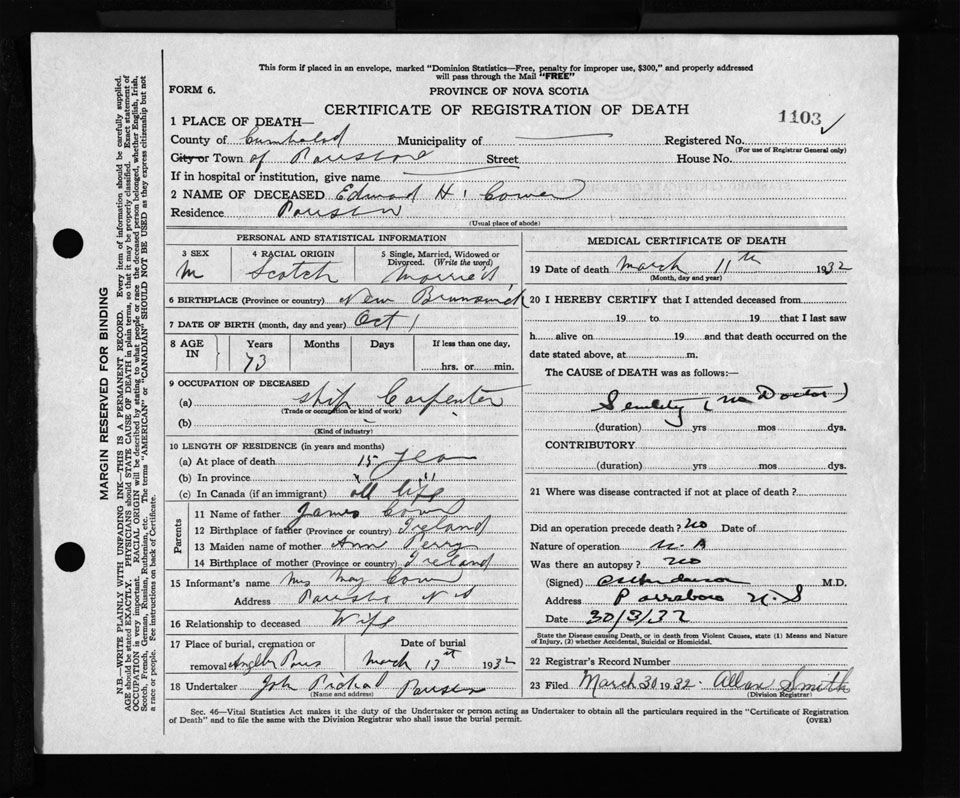 This form if placed in an envelope, marked "Dominion Statistics—Free, penalty for improper use, $300," and properly addressed
will pass through the Mail "FREE"
FORM 6.
PROVINCE OF NOVA SCOTIA
CERTIFICATE OF REGISTRATION OF DEATH
1103
1 PLACE OF DEATH—
County of Municipality of Registered No.
(For use of Registrar General only)
City or Town of Street House No.
If in hospital or institution, give name
2 NAME OF DECEASED Edward H.
Residence
(Usual place of abode)
PERSONAL AND STATISTICAL INFORMATION
3 SEX 4 RACIAL ORIGIN 5 Single, Married, Widowed or Divorced. (Write the word)
M Scotch Married
6 BIRTHPLACE (Province or country) New Brunswick
7 DATE OF BIRTH (month, day and year) Oct 1
8 AGE IN Years Months Days If less than one day,
73 hrs. or min.
9 OCCUPATION OF DECEASED
(a) Ship Carpenter
(Trade or occupation or kind of work)
(b)
(Kind of industry)
10 LENGTH OF RESIDENCE (in years and months)
(a) At place of death 15
(b) In province " "
(c) In Canada (if an immigrant) all life
Parents
11 Name of father James
12 Birthplace of father (Province or country) Ireland
13 Maiden name of mother Ann Perry
14 Birthplace of mother (Province or country) Ireland
15 Informant's name Mrs May
Address N S
16 Relationship to deceased Wife
17 Place of burial, cremation or removal Date of burial
March 1932
18 Undertaker John
(Name and address)
MEDICAL CERTIFICATE OF DEATH
19 Date of death March 11th 1932
(Month, day and year)
20 I HEREBY CERTIFY that I attended deceased from
19 to 19 that I last saw
h alive on 19 and that death occurred on the
date stated above, at m.
The CAUSE of DEATH was as follows:—
Senility (no Doctor)
(duration) yrs mos dys.
CONTRIBUTORY
(duration) yrs mos dys.
21 Where was disease contracted if not at place of death?
Did an operation precede death? no Date of
Nature of operation N.A
Was there an autopsy? no
(Signed) M.D.
Address Parrsboro N.S
Date 30/3/32
State the Disease causing Death, or in death from Violent Causes, state (1) Means and Nature
of Injury, (2) whether Accidental, Suicidal or Homicidal.
22 Registrar's Record Number
23 Filed March 30 1932. Allan Smith
(Division Registrar)
Sec. 46—Vital Statistics Act makes it the duty of the Undertaker or person acting as Undertaker to obtain all the particulars required in the "Certificate of Registration
of Death" and to file the same with the Division Registrar who shall issue the burial permit.
(OVER)
MARGIN RESERVED FOR BINDING
N.B.—WRITE PLAINLY WITH UNFADING INK—THIS IS A PERMANENT RECORD. Every item of information should be carefully supplied.
AGE should be stated EXACTLY. PHYSICIANS should STATE CAUSE OF DEATH in plain terms, so that it may be properly classified. Exact statement of
OCCUPATION is very important. RACIAL ORIGIN will be described by stating to what people or race the deceased person belonged, whether English, Irish,
Scotch, French, German, Russian, Ruthenian, etc. The terms "AMERICAN" or "CANADIAN" SHOULD NOT BE USED as they express citizenship but not
a race or people. See instructions on back of Certificate.